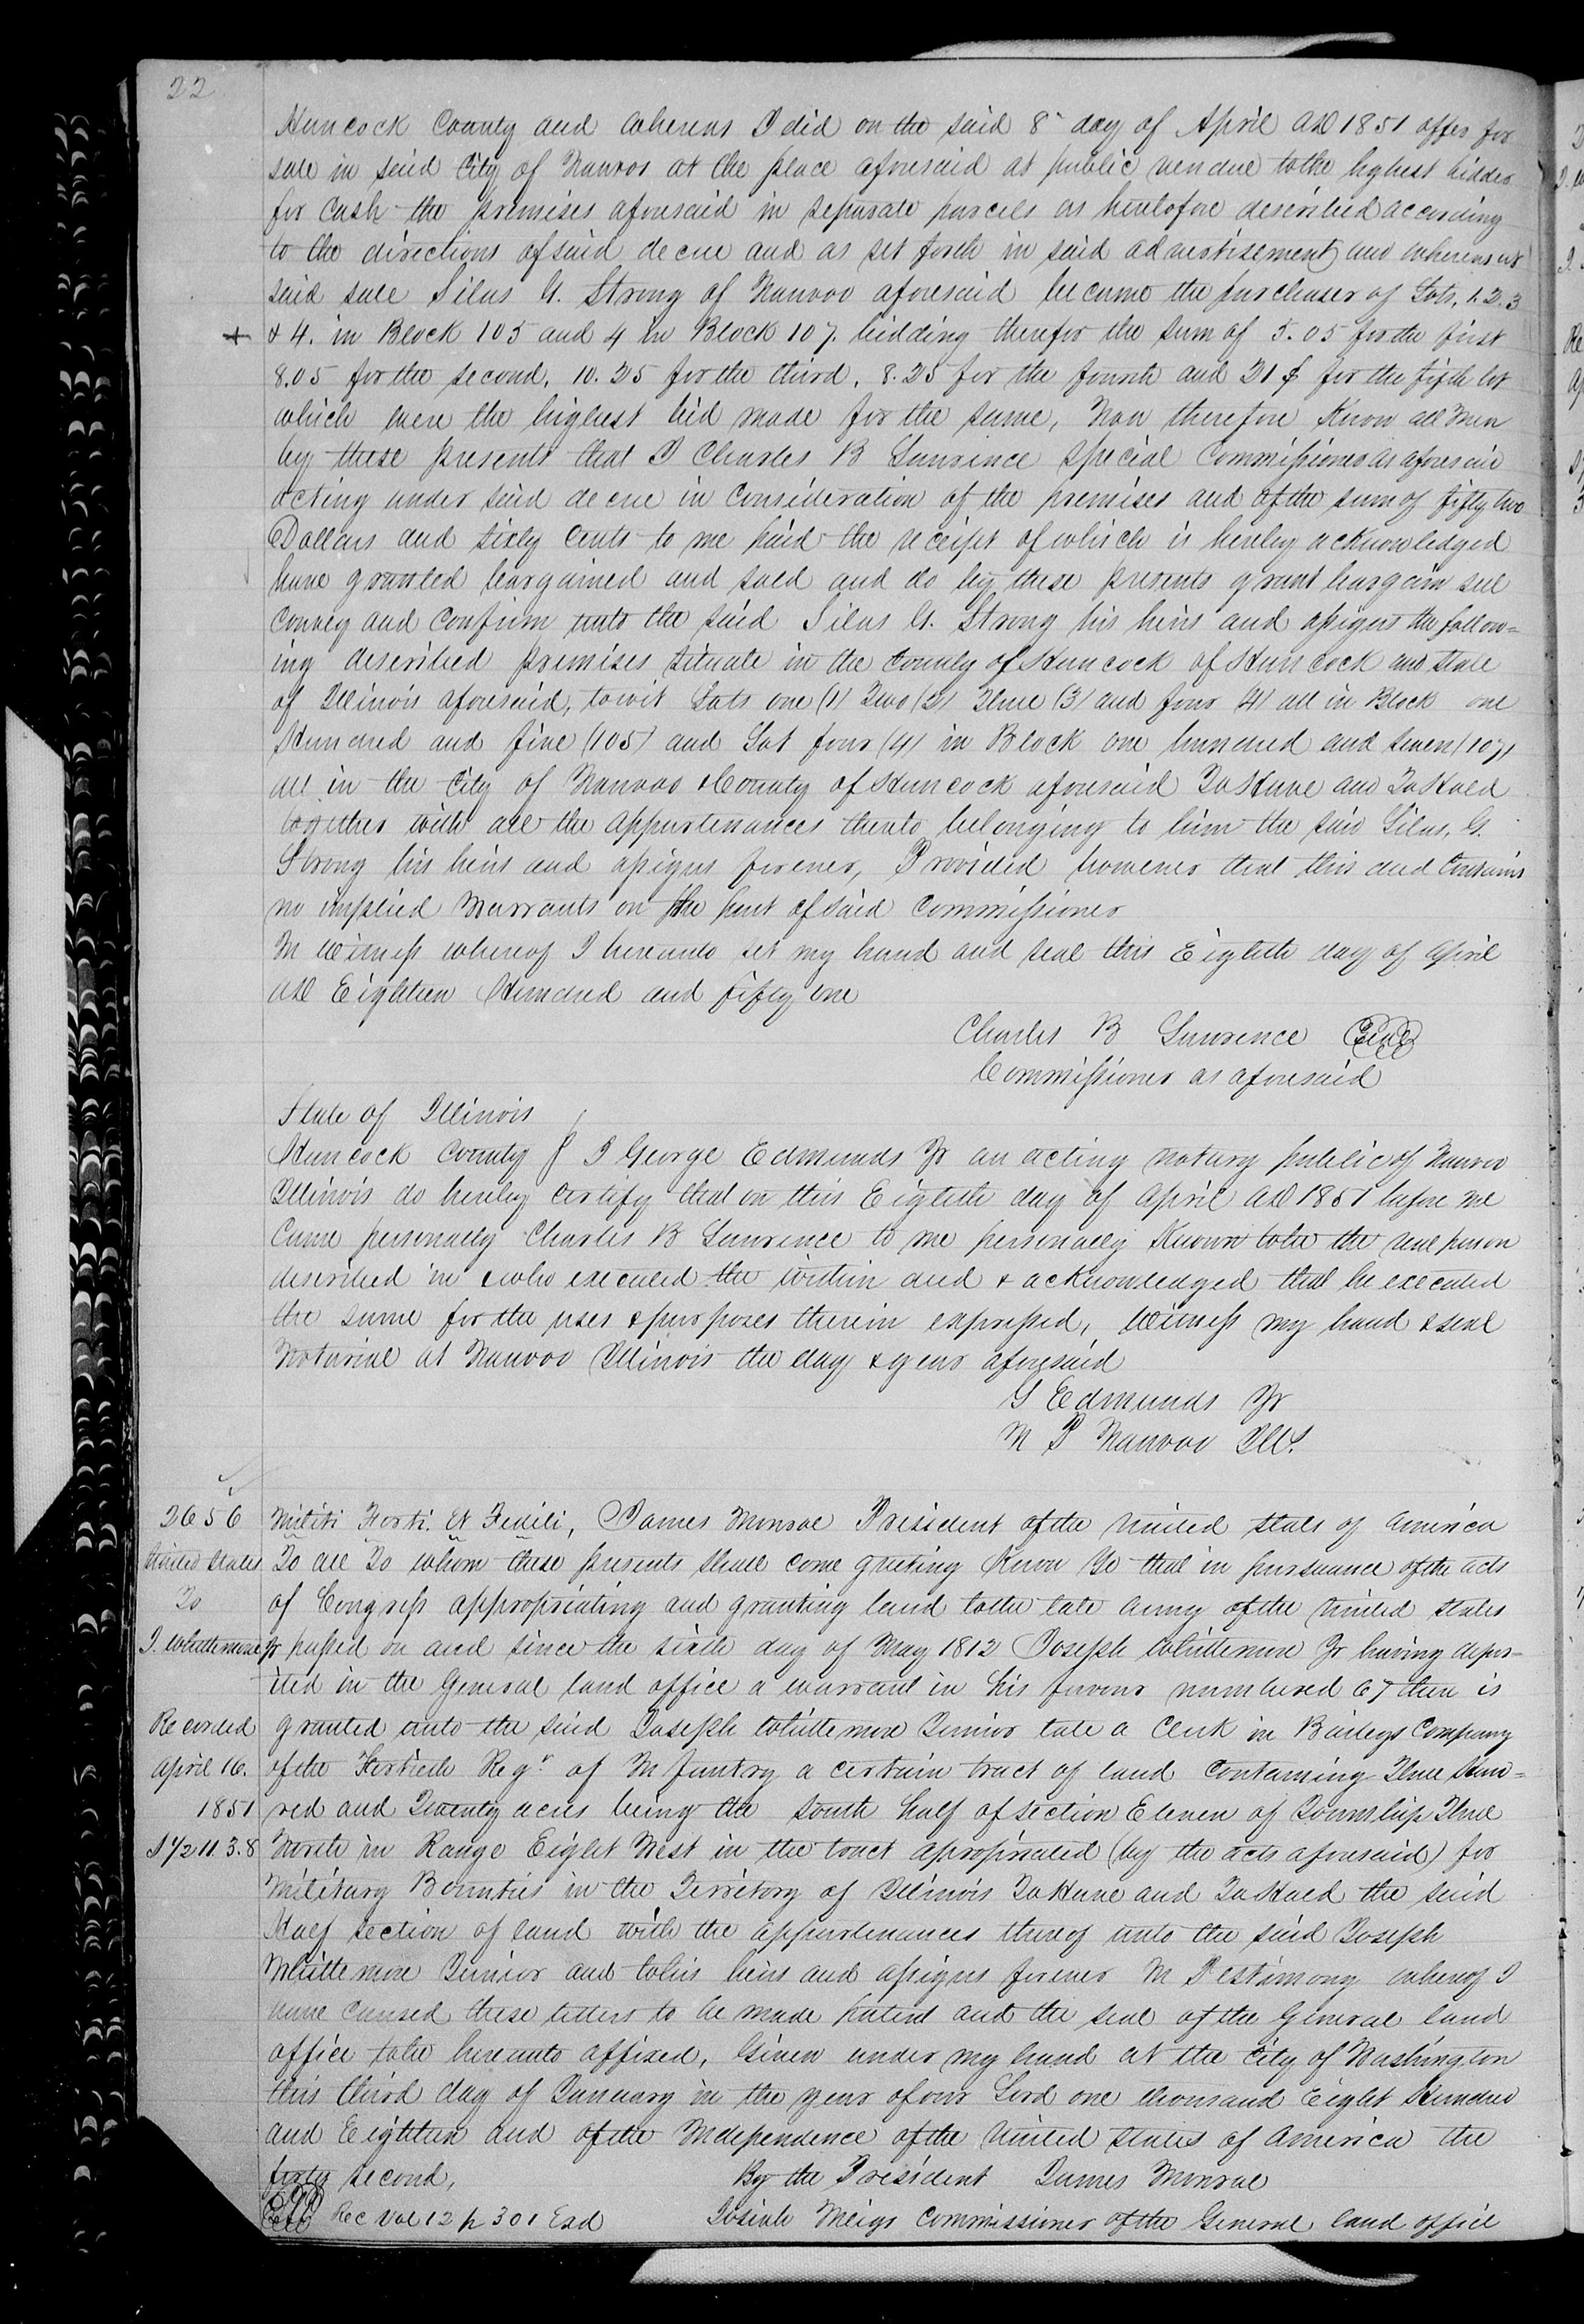 22
Hancock County and whereas I did on the said 8th day of April AD 1851 offer for
sale in said City of Nauvoo at the place aforesaid at public vendue to the highest bidder
for cash the premises aforesaid in separate parcels as heretofore described according
to the directions of said decree and as set forth in said advertisement and whereas at
said sale Silas G. Strong of Nauvoo aforesaid became the purchaser of Lots, 1. 2. 3
+ & 4. in Block 105 and 4 in Block 107. bidding therefor the sum of 5.05 for the first
8.05 for the second, 10.25 for the third, 8.25 for the fourth and 21 $ for the fifth lot
which were the highest bid made for the same, Now therefore Know all Men
by these presents that I Charles B Lawrence Special Commissioner as aforesaid
acting under said decree in Consideration of the premises and of the sum of fifty two
Dollars and sixty Cents to me paid the receipt of which is hereby acknowledged
have granted bargained and sold and do by these presents grant bargain sell
convey and confirm unto the said Silas G. Strong his heirs and assigns the follow=
ing described premises situate in the County of Hancock of Hancock and State
of Illinois aforesaid, to wit Lots one (1) Two (2) Three (3) and four (4) all in Block one
Hundred and five (105) and Lot four (4) in Block one hundred and seven (107)
all in the City of Nauvoo & County of Hancock aforesaid To Have and To Hold
together with all the appurtenances thereto belonging to him the said Silas, G.
Strong his heirs and assigns forever, Provided however that this deed contains
no implied Warrants on the part of said Commissioner
In Witness whereof I hereunto set my hand and seal this Eighth day of April
AD Eighteen Hundred and fifty one
Charles B Lawrence Seal
Commissioner as aforesaid
State of Illinois
Hancock County } I George Edmunds Jr an acting notary public of Nauvoo
Illinois do hereby certify that on this Eighth day of April AD 1851 before me
Came personally Charles B Lawrence to me personally Known to be the real person
described in & who executed the within deed & acknowledged that he executed
the same for the uses & purposes therein expressed, Witness my hand & seal
Notarial at Nauvoo Illinois the day & year aforesaid
G Edmunds Jr
N P Nauvoo Ills.
2656 Militi Forti. Et Fideli, James Monroe President of the United States of America
United States To all To whom these presents shall come greeting Know Ye that in pursuance of the acts
To of Congress appropriating and granting land to the late Army of the United States
J. Whittemore Jr passed on and since the sixth day of May 1812 Joseph Whittemore Jr having depos=
ited in the General land office a warrant in his favour numbered 67 there is
Recorded granted unto the said Joseph Whittemore Junior late a Clerk in Baileys Company
April 16. of the Fortieth Regt of Infantry a certain tract of land containing Three Hun=
1851 red and Twenty acres being the South half of section Eleven of Township Three
S 1/2 11. 3. 8 North in Range Eight West in the tract apropriated (by the acts aforesaid) for
Military Bounties in the Territory of Illinois To Have and To Hold the said
Half section of land with the appurtenances thereof unto the said Joseph
Whittemore Junior and to his heirs and assigns forever In Testimony whereof I
have caused these letters to be made patent and the seal of the General land
office to be hereunto affixed, Given under my hand at the City of Washington
this third day of January in the year of our Lord one thousand Eight Hundred
and Eighteen and of the Independence of the United States of America the
forty second, By the President James Monroe
Seal Rec Vol 12 p 301 Exd Josiah Meigs Commissioner of the General land office